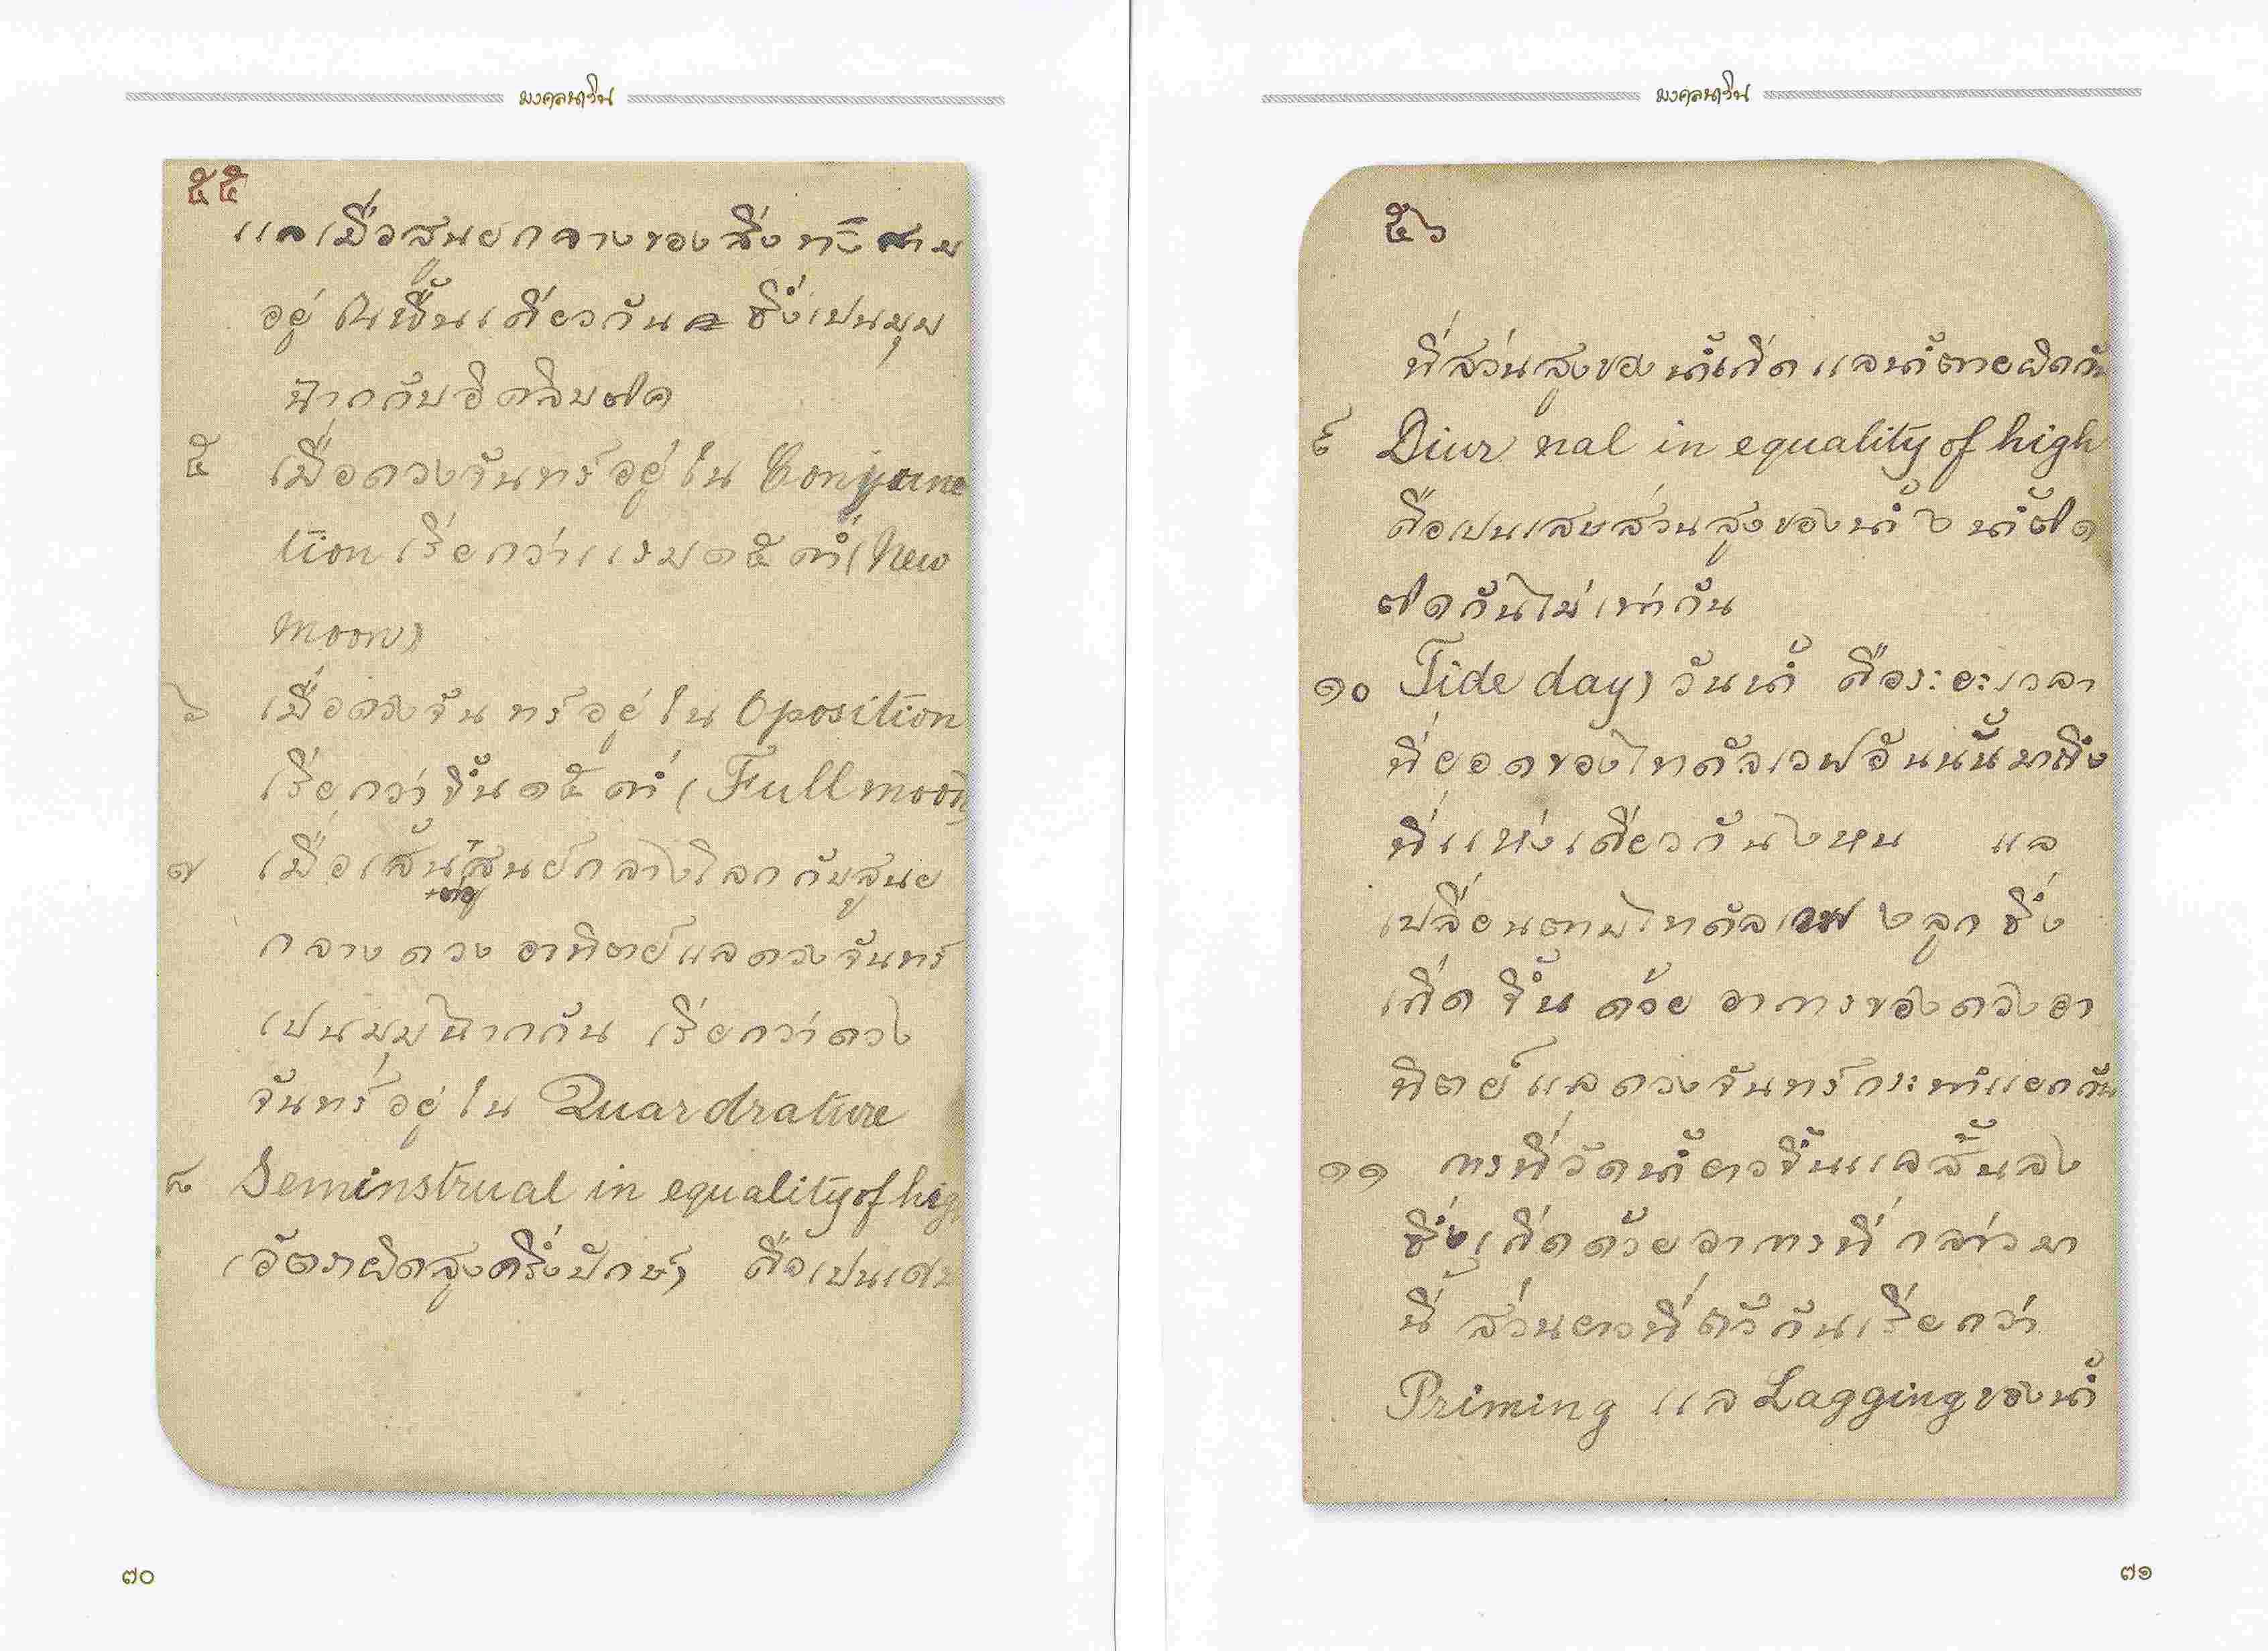 มงคลนาวิน
๕๕
แลเมื่อสูนยกลางของสิ่งทั้งสาม
อยู่ในพื้นเดียวกัน ซึ่งเปนมุม
ฉากกับอิคลิบติค
๕ เมื่อดวงจันทร์อยู่ใน Conjunc
tion เรียกว่าแรม ๑๕ ค่ำ (New
moon)
๖ เมื่อดวงจันทร์อยู่ใน Oposition
เรียกว่าขึ้น ๑๕ ค่ำ (Full moon)
๗ เมื่อเส้นต่อสูนย์กลางโลกกับสูนย
กลางดวงอาทิตย์แลดวงจันทร์
เปนมุมฉากกัน เรียกว่าดวง
จันทร์อยู่ใน Quardrature
๘ Seminstrual in equality of hig
(อัตราผิดสูงครึ่งปักษ์) คือเปนเศษ
๗๐
มงคลนาวิน
๕๖
ที่ส่วนสูงของน้ำเกิดแลน้ำตายผิดกัน
๙ Diur nal in equality of high
คือเปนเสษส่วนสูงของน้ำ ๒ น้ำติด
ติดกันไม่เท่ากัน
๑๐ Tide day) วันน้ำ คือระยะเวลา
ที่ยอดของไทดัลเวฟอันนั้นมาถึง
ที่แห่งเดียวกัน ๒ หน แล
เปลี่ยนตามไทดัลเวฟ ๒ ลูก ซึ่ง
เกิดขึ้นด้วยอาการของดวงอา
ทิตย์แลดวงจันทร์กระทำแยกกัน
๑๑ การที่วัดน้ำยาวขึ้นแลสั้นลง
ซึ่งเกิดด้วยอาการที่กล่าวมา
นี้ ส่วนยาวที่ กันเรียกว่า
Priming แล Lagging ของน้ำ
๗๑